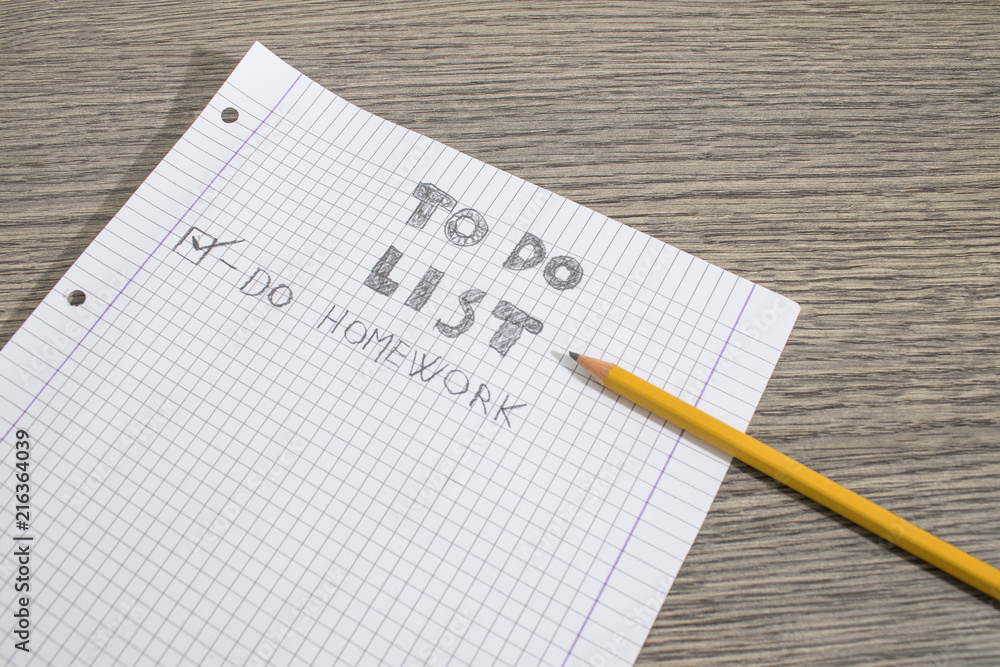 TO DO
LIST
- DO HOMEWORK
Adobe Stock | #216364039